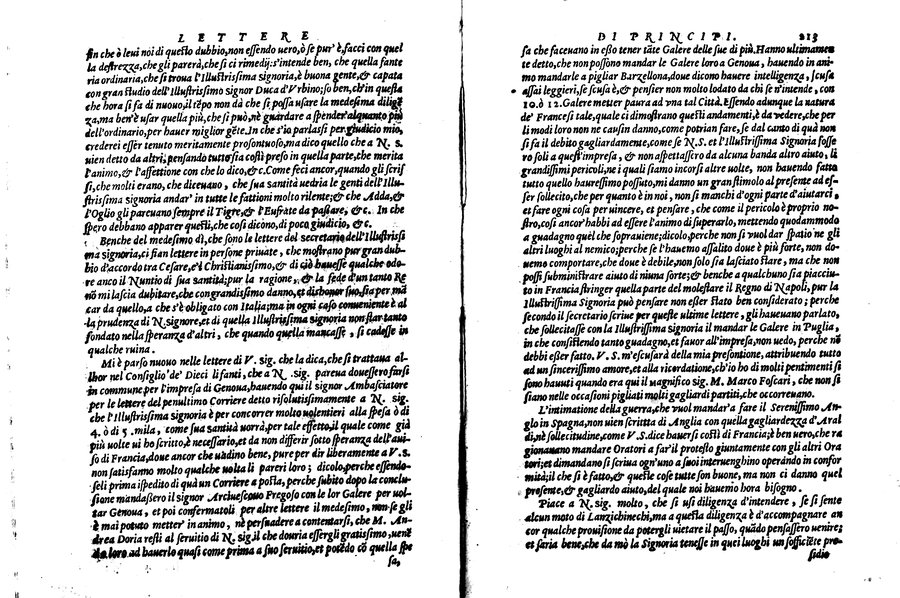 LETTERE
fin che ò leui noi di questo dubbio, non essendo uero, ò se pur' è, facci con quel
la destrezza, che gli parerà, che se ci rimedij: s'intende ben, che quella fante
ria ordinaria, che si troua l'Illustrissima signoria, è buona gente, & capata
con gran studio dell'Illustrissimo signor Duca d'Vrbino; so ben, ch'in questa
che hora si fa di nuouo, il tẽpo non dà che si possa usare la medesima diligẽ
za, ma ben'è usar quella più, che si può, nè guardare a spẽder alquanto più
dell'ordinario, per hauer miglior gẽte. In che s'io parlassi per giudicio mio,
crederei esser tenuto meritamente prosontuoso, ma dico quello che a N. s.
uien detto da altri, pensando tutto sia così preso in quella parte, che merita
l'animo, & l'affettione con che lo dico, &c. Come feci ancor, quando gli scris
si, che molti erano, che diceuano, che sua santità uedria le genti dell'Illu-
strissima signoria andar' in tutte le fattioni molto rilente; & che Adda, &
l'Oglio gli pareuano sempre il Tigre, & l'Eufrate da passare, &c. In che
spero debbano apparer questi, che così dicono, di poco giudicio, &c.
Benche del medesimo dì, che sono le lettere del secretario dell'Illustrissi
ma signoria, ci sian lettere in persone priuate, che mostrano pur gran dub-
bio d'accordo tra Cesare, e'l Christianissimo, & di ciò hauesse qualche odo-
re anco il Nuntio di sua santità; pur la ragione, & la fede d'un tanto Re
nõ mi lascia dubitare, che con grandissimo danno, et dishonor suo, sia per mã
car da quello, a che s'è obligato con Italia; ma in ogni caso conueniente è al
la prudenza di N. signore, et di quella Illustrissima signoria non star tanto
fondato nella speranza d'altri, che quando quella mancasse, si cadesse in
qualche ruina.
Mi è parso nuouo nelle lettere di V. sig. che la dica, che si trattaua al-
lhor nel Consiglio de' Dieci li fanti, che a N. sig. pareua douessero farsi
in commune per l'impresa di Genoua, hauendo qui il signor Ambasciatore
per le lettere del penultimo Corriere detto risolutissimamente a N. sig.
che l'Illustrissima Signoria è per concorrer molto uolentieri alla spesa ò di
4. ò di 5. mila, come sua santità uorrà, per tale effetto, il quale come già
più uolte ui ho scritto, è necessario, et da non differir sotto speranza dell'aui-
so di Francia, doue ancor che uadino bene, pure per dir liberamente a V. s.
non satisfanno molto qualche uolta li pareri loro; dicolo, perche essendo-
seli prima ispedito di quà un Corriere a posta, perche subito dopo la conclu-
sione mandassero il signor Arciuescouo Fregoso con le lor Galere per uol-
tar Genoua, et poi confermatoli per altre lettere il medesimo, non se gli
è mai potuto metter' in animo, nè persuadere a contentarsi, che M. An-
drea Doria resti al seruitio di N. sig. il che douria essergli gratissimo, uenẽ
do loro ad hauerlo quasi come prima a suo seruitio, et potẽdo cõ quella spe
sa,
DI PRINCIPI. 213
sa che faceuano in esso tener tãte Galere delle sue di più. Hanno ultimamen
te detto, che non possono mandar le Galere loro a Genoua, hauendo in ani-
mo mandarle a pigliar Barzellona, doue dicono hauere intelligenza, scusa
assai leggieri, se è, & pensier non molto lodato da chi se n'intende, con
10. ò 12. Galere metter paura ad vna tal Città. Essendo adunque la natura
de' Francesi tale, quale ci dimostrano questi andamenti, è da vedere, che per
li modi loro non ne causin danno, come potrian fare, se dal canto di quà non
si fa il debito gagliardamente, come se N. S. et l'Illustrissima Signoria fosse
ro soli a quest'impresa, & non aspettassero da alcuna banda altro aiuto, li
grandissimi pericoli, ne i quali siamo incorsi altre uolte, non hauendo fatto
tutto quello haressimo possuto, mi danno un gran stimolo al presente ad es-
ser sollecito, che per quanto è in noi, non si manchi d'ogni parte d'aiutarci,
et fare ogni cosa per uincere, et pensare, che come il pericolo è proprio no-
stro, così ancor'habbi ad essere l'animo di superarlo, mettendo quodammodo
a guadagno quel che soprauiene; dicolo, perche non si vuol dar spatio ne gli
altri luoghi al nemico; perche se l'hauemo assalito doue è più forte, non do-
uemo comportare, che doue è debile, non solo sia lasciato stare, ma che non
possi subministrare aiuto di niuna forte; & benche a qualchuno sia piacciu-
to in Francia stringer quella parte del molestare il Regno di Napoli, pur la
Illustrissima Signoria può pensare non esser stato ben considerato; perche
secondo il secretario scriue per queste ultime lettere, gli haueuano parlato,
che sollecitasse con la Illustrissima Signoria il mandar le Galere in Puglia,
in che consistendo tanto guadagno, et fauor all'impresa, non uedo, perche nõ
debbi esser fatto. V. S. m'escusarà della mia presontione, attribuendo tutto
ad un sincerissimo amore, et alla ricordatione, ch'io ho di molti pentimenti si
sono hauuti quando era qui il Magnifico sig. M. Marco Foscari, che non si
siano nelle occasioni pigliati molti gagliardi partiti, che occorreuano.
L'intimatione della guerra, che vuol mandar'a fare il Serenissimo An-
glo in Spagna, non uien scritta di Anglia con quella gagliardezza d'Aral
di, nè sollecitudine, come V. S. dice hauersi costì di Francia; è ben uero, che ra
gionauano mandare Oratori a far'il protesto giuntamente con gli altri Ora
tori; et dimandano si scriua ogn'uno a suoi interuenghino operando in confor
mità; il che si è fatto, & queste cose tutte son buone, ma non ci danno quel
presente, & gagliardo aiuto, del quale noi hauemo hora bisogno.
Piace a N. sig. molto, che si usi diligenza d'intendere, se si sente
alcun moto di Lanzichinechi, ma a questa diligenza è d'accompagnare an
cor qualche prouisione da potergli uietare il passo, quãdo pensassero uenire;
et saria bene, che da mò la Signoria tenesse in quei luoghi un sofficiẽte pre-
sidio